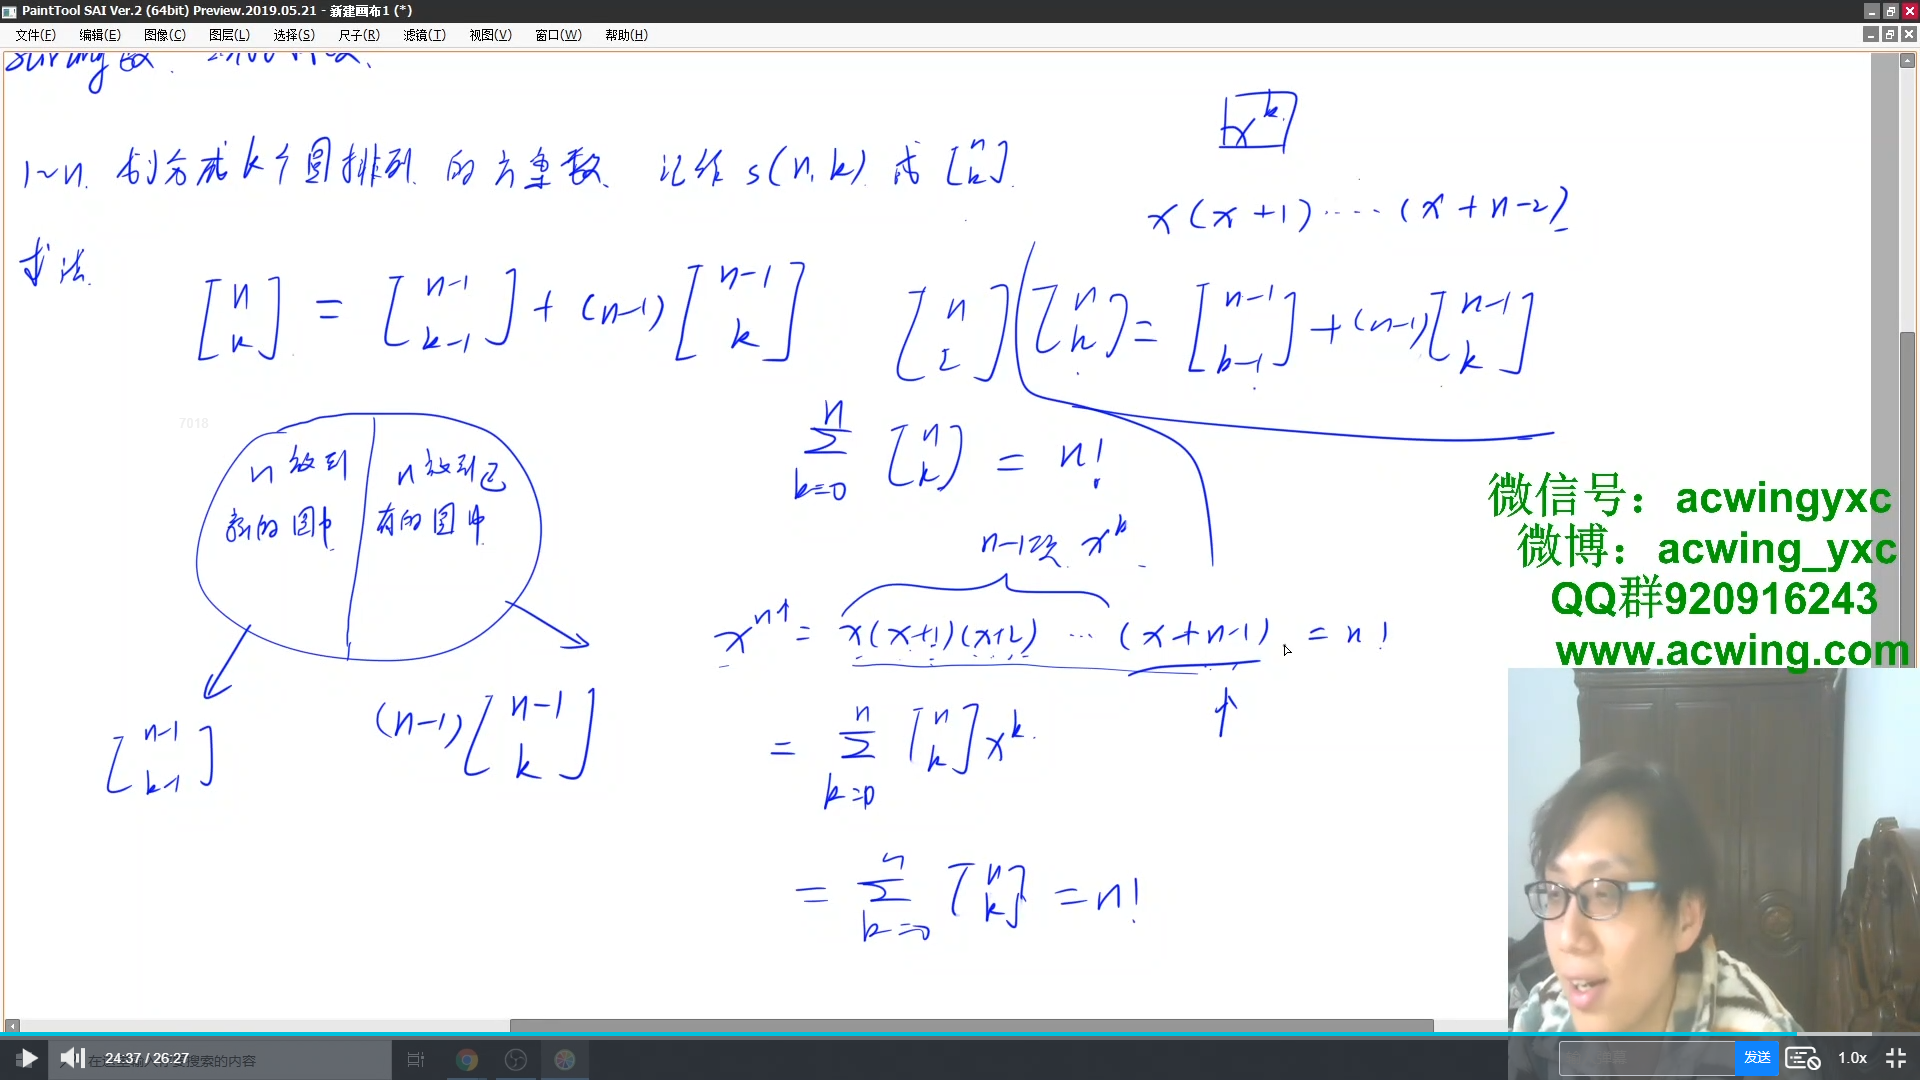 PaintTool SAI Ver.2 (64bit) Preview.2019.05.21 - 新建画布1 (*)
文件(F) 编辑(E) 图像(C) 图层(L) 选择(S) 尺子(R) 滤镜(T) 视图(V) 窗口(W) 帮助(H)
1~n 划分成k个圆排列 的方案数 记作 s(n,k) 或 [n k]
x^k
x(x+1)····(x+n-2)
求法
[n k] = [n-1 k-1] + (n-1)[n-1 k]
[n k] = [n-1 k-1] + (n-1)[n-1 k]
7018
n放到新的圆中
n放到已有的圆中
[n-1 k-1]
(n-1)[n-1 k]
n Σ k=0 [n k] = n!
n-1次 x^k
x^n↑ = x(x+1)(x+2) ··· (x+n-1) = n!
= n Σ k=0 [n k] x^k
= n Σ k=0 [n k] = n!
微信号：acwingyxc
微博：acwing_yxc
QQ群920916243
www.acwing.com
24:37 / 26:27
在这里输入你要搜索的内容
发送
1.0x